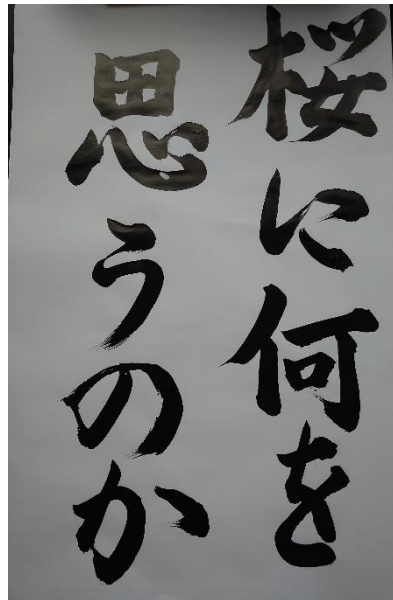 桜に何を
思うのか